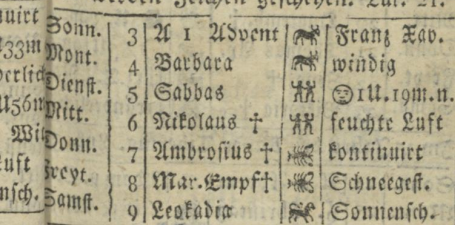 Sonn. 3 A 1 Advent Franz Xav.
Mont. 4 Barbara windig
Dienst. 5 Sabbas 1U.19m.n.
Mitt. 6 Nikolaus † feuchte Luft
Donn. 7 Ambrosius † kontinuirt
Freyt. 8 Mar.Empf† Schneegest.
Samst. 9 Leokadia Sonnensch.